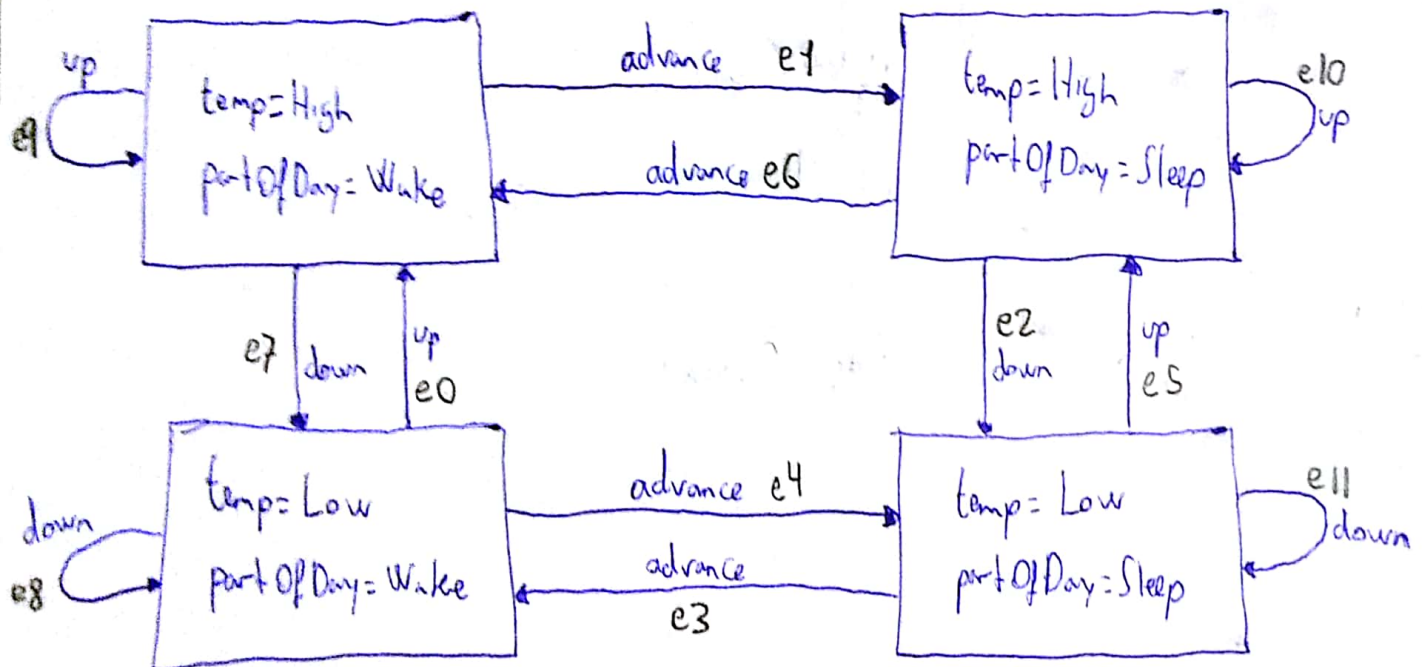 up
e9
temp=High
partOfDay=Wake
advance e1
advance e6
temp=High
partOfDay=Sleep
e10
up
e7
down
up
e0
e2
down
up
e5
down
e8
temp=Low
partOfDay=Wake
advance e4
advance
e3
temp=Low
partOfDay=Sleep
e11
down